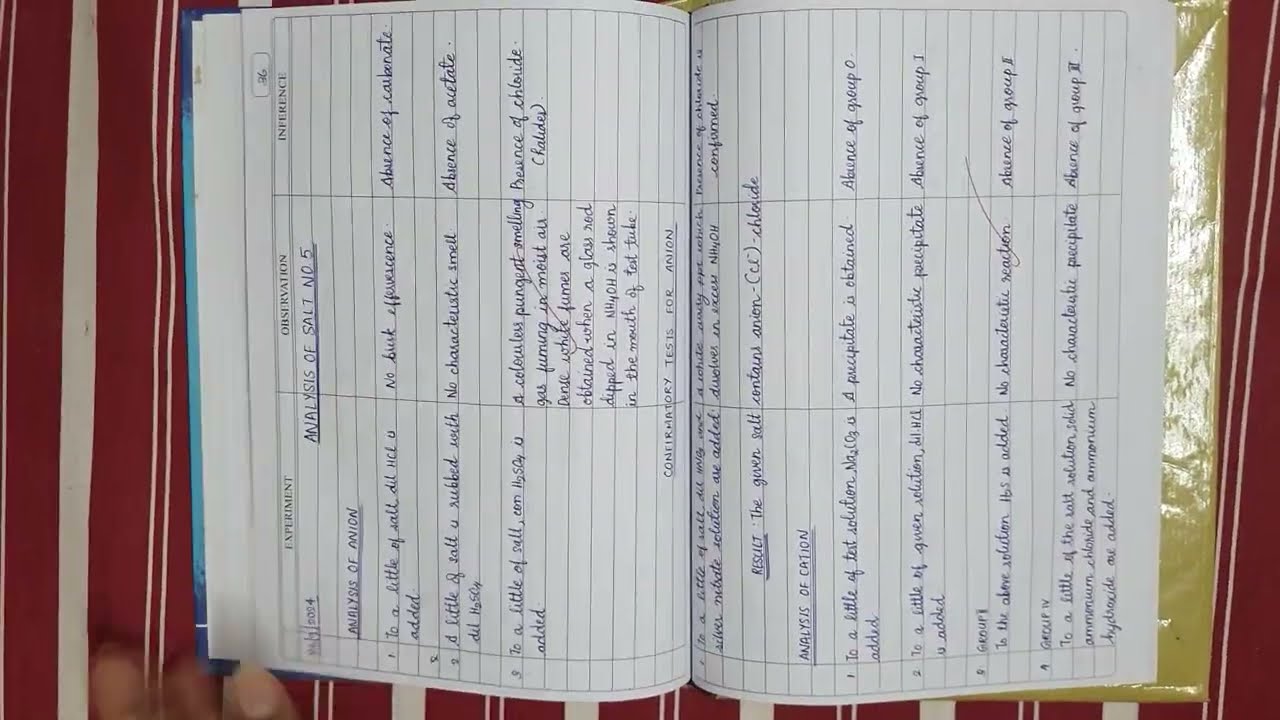 36
EXPERIMENT OBSERVATION INFERENCE
ANALYSIS OF SALT NO 5
ANALYSIS OF ANION
1. To a little of salt dil HCl is No bwsk effervescence. Absence of carbonate.
added
2 A little of salt is rubbed with No characteristic smell. Absence of acetate.
dil H₂SO₄
3 To a little of salt, con H₂SO₄ is A colourless pungent smelling Presence of chloride.
added gas fuming in moist air (halides).
Dense white fumes are
obtained when a glass rod
dipped in NH₄OH is shown
in the mouth of test tube.
CONFIRMATORY TESTS FOR ANION
1. To a little of salt dil HNO₃ and A white curdy ppt which Presence of chloride is
silver nitrate solution are added dissolves in excess NH₄OH confirmed.
RESULT: The given salt contains anion-(Cl⁻)-chloride
ANALYSIS OF CATION
1 To a little of test solution Na₂CO₃ is A precipitate is obtained. Absence of group 0.
added
2 To a little of given solution, dil. HCl No charateristic precipitate Absence of group I
is added
3 GROUP II
To the above solution H₂S is added. No charateristic reaction. Absence of group II
4 GROUP IV
To a little of the salt solution, solid No characteristic precipitate Absence of group III.
ammonium chloride and ammonium
hydroxide are added.